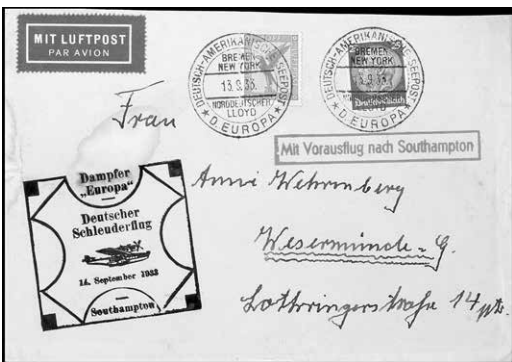 MIT LUFTPOST
PAR AVION
DEUTSCH-AMERIKANISCHE SEEPOST
BREMEN
NEW YORK
13.9.33
NORDDEUTSCHER
LLOYD
* D. EUROPA *
DEUTSCH-AMERIKANISCHE SEEPOST
BREMEN
NEW YORK
Deutsches Reich
* D. EUROPA *
Mit Vorausflug nach Southampton
Frau
Anni
Wesermünde - G.
Lothringerstraße 14
Dampfer
„Europa"
Deutscher
Schleuderflug
14. September 1933
Southampton